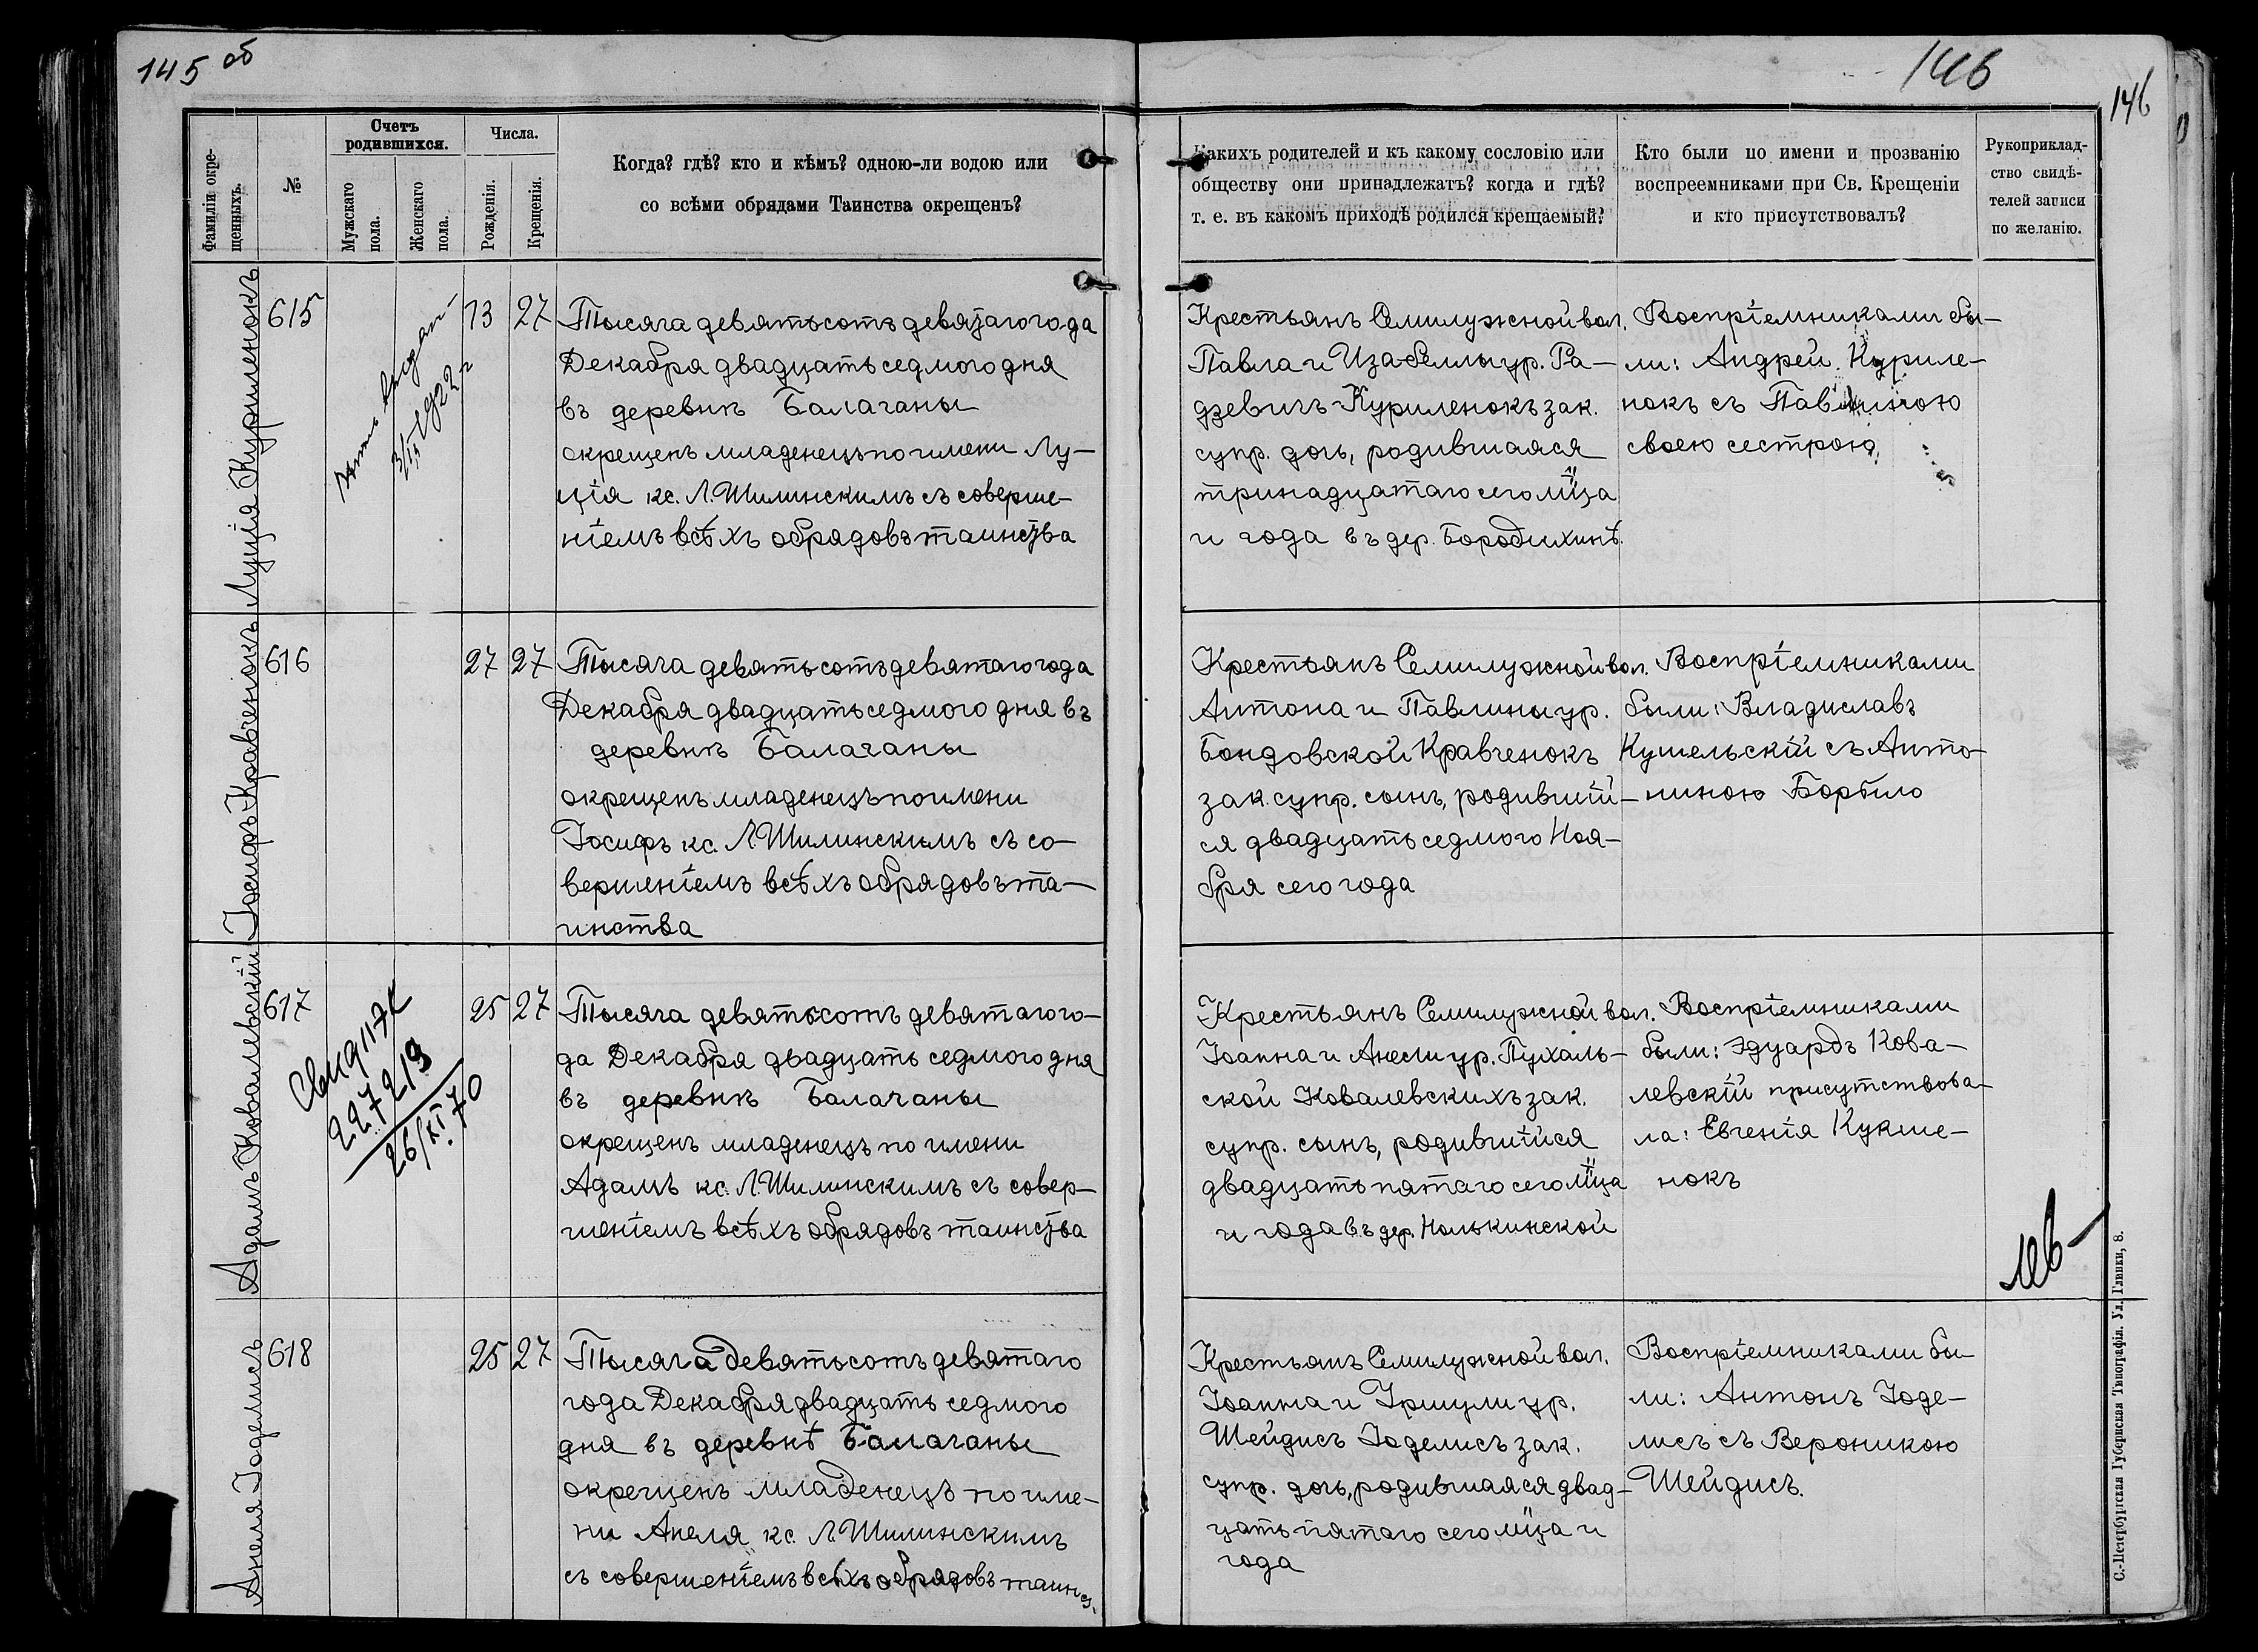 145 об
146
146
Фамиліи окре-
щенныхъ.
№
Счетъ
родившихся.
Мужскаго
пола.
Женскаго
пола.
Числа.
Рожденія.
Крещенія.
Когда? гдѣ? кто и кѣмъ? одною-ли водою или
со всѣми обрядами Таинства окрещенъ?
Какихъ родителей и къ какому сословію или
обществу они принадлежатъ? когда и гдѣ?
т. е. въ какомъ приходѣ родился крещаемый?
Кто были по имени и прозванію
воспреемниками при Св. Крещеніи
и кто присутствовалъ?
Рукоприклад-
ство свидѣ-
телей записи
по желанію.
Луція Куриленокъ
615
выдан
3/15 1922 г
13
27
Тысяча девятьсотъ девятаго года
Декабря двадцать седмого дня
въ деревнѣ Балаганы
окрещенъ младенецъ по имени Лу-
ція кс. Л. Шилинскимъ съ соверше-
ніемъ всѣхъ обрядовъ таинства
Крестьянъ Семилужной вол.
Павла и Изабеллы ур. Ра-
дзевичъ Куриленокъ зак.
супр. дочь, родившаяся
тринадцатаго сего мца
и года въ дер. Бородихинѣ.
Воспріемниками бы-
ли: Андрей Куриле-
нокъ съ Павлиною
своею сестрою
Іосифъ Кравченокъ
616
27
27
Тысяча девятьсотъ девятаго года
Декабря двадцать седмого дня въ
деревнѣ Балаганы
окрещенъ младенецъ по имени
Іосифъ кс. Л. Шилинскимъ съ со-
вершеніемъ всѣхъ обрядовъ та-
инства
Крестьянъ Семилужной вол.
Антона и Павлины ур.
Бондовской Кравченокъ
зак. супр. сынъ, родившій-
ся двадцать седмого Ноя-
бря сего года
Воспріемниками
были: Владиславъ
Кушельскій съ Анто-
ниною Борбило
Адамъ Ковалевскій
617
227219
26/XI.70
25
27
Тысяча девятьсотъ девятаго го-
да Декабря двадцать седмого дня
въ деревнѣ Балаганы
окрещенъ младенецъ по имени
Адамъ кс. Л. Шилинскимъ съ совер-
шеніемъ всѣхъ обрядовъ таинства
Крестьянъ Семилужной вол.
Іоанна и Анели ур. Пухаль-
ской Ковалевскихъ зак.
супр. сынъ, родившійся
двадцать пятаго сего мца
и года въ дер. Нолькинской
Воспріемниками
были: Эдуардъ Кова-
левскій присутствова-
ла: Евгенія Кукше-
нокъ
Анеля Іоделисъ
618
25
27
Тысяча девятьсотъ девятаго
года Декабря двадцать седмого
дня въ деревнѣ Балаганы
окрещенъ младенецъ по име-
ни Анеля кс. Л. Шилинскимъ
съ совершеніемъ всѣхъ обрядовъ таинс.
Крестьянъ Семилужной вол.
Іоанна и Уршули ур.
Шейдисъ Іоделисъ зак.
супр. дочь, родившаяся двад-
цать пятаго сего мца и
года
Воспріемниками бы
ли: Антонъ Іоде-
лисъ съ Вероникою
Шейдисъ.
С.-Петербургская Губернская Типографія. Ул. Глинки, 8.